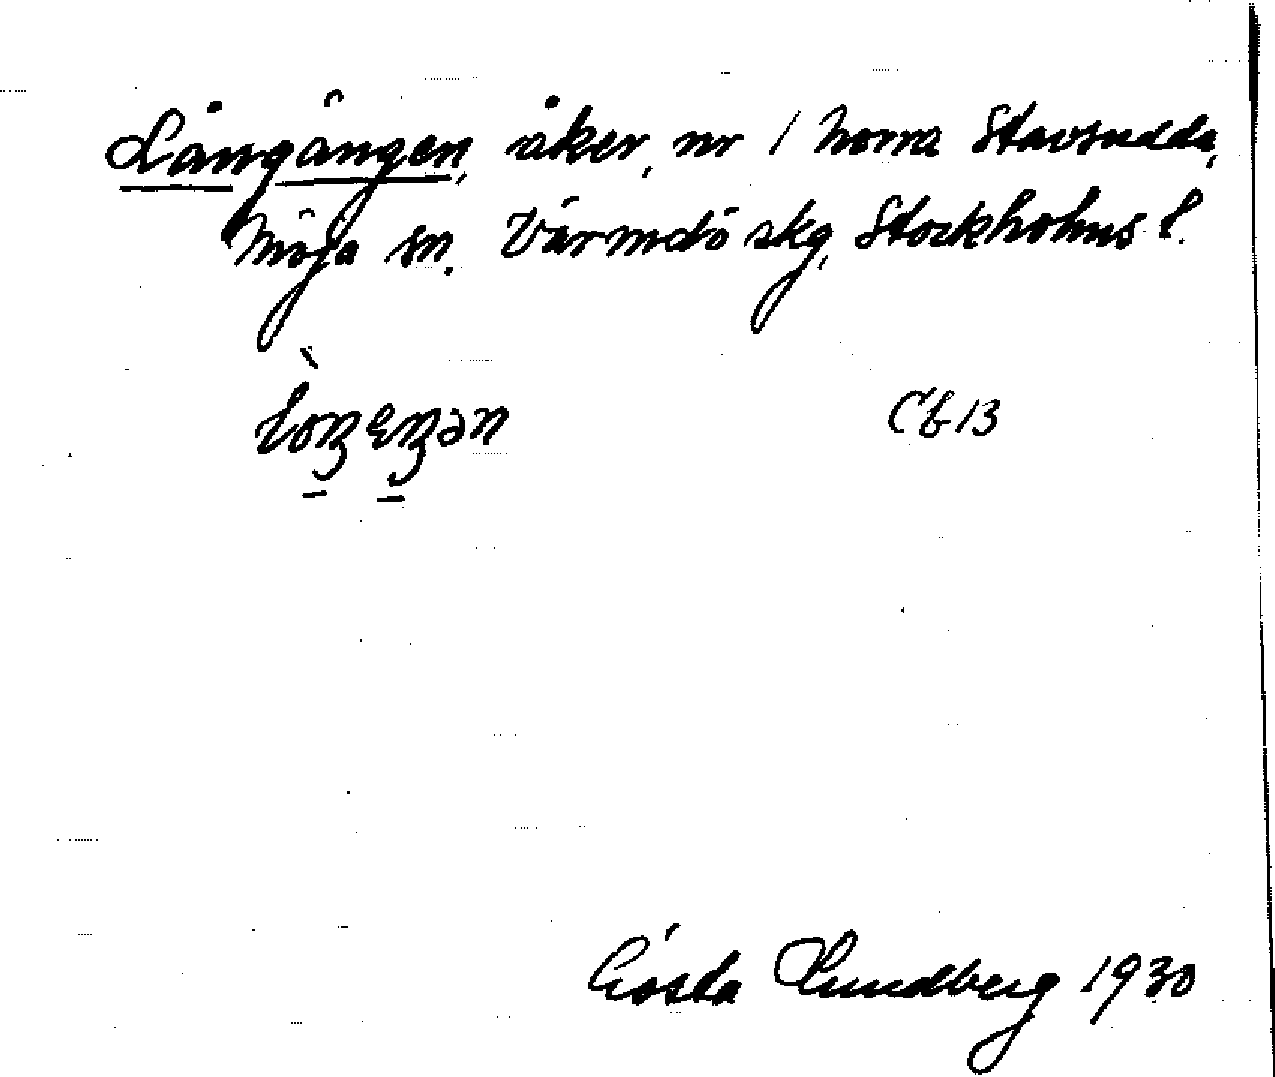 Långängen, åker, nr 1 Norra Stavsudda,
Möja sn. Värmdö skg, Stockholms l.
Cb 13
Gösta Lundberg 1930